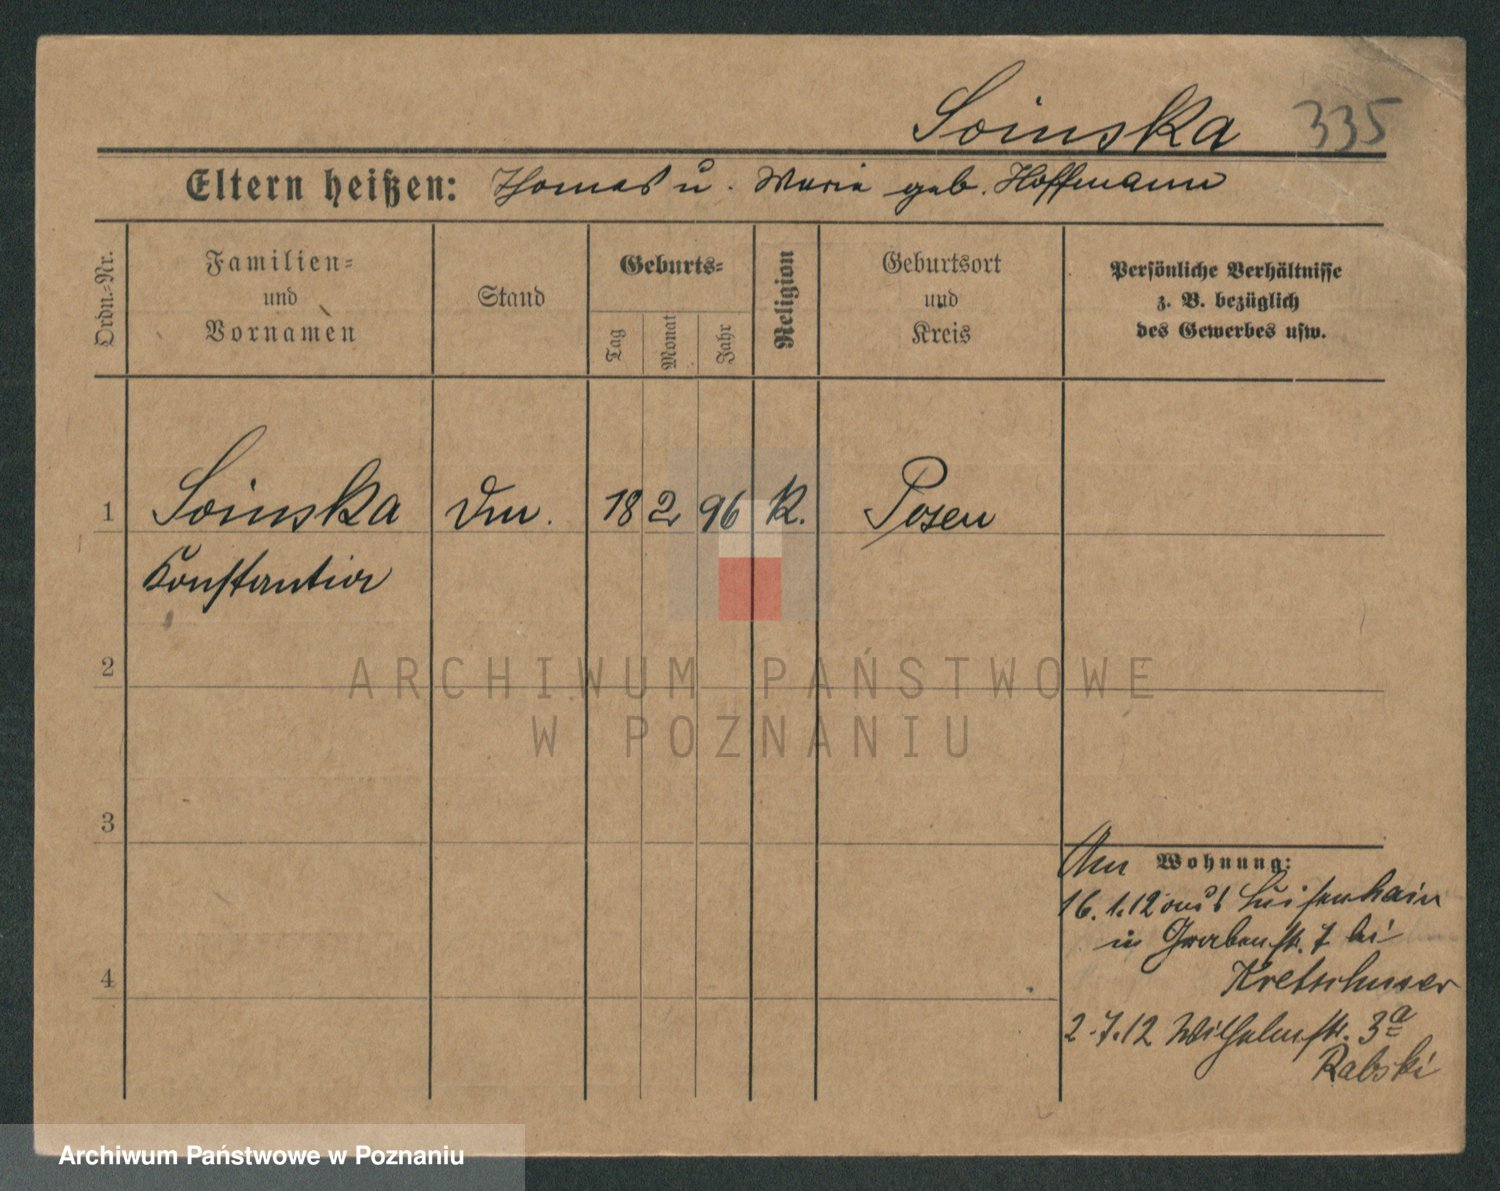 Soinska 335
Eltern heißen: Thomas u. Maria geb. Hoffmann
Ordn.-Nr.
Familien-
und
Vornamen
Stand
Geburts-
Tag
Monat
Jahr
Religion
Geburtsort
und
Kreis
Persönliche Verhältnisse
z. B. bezüglich
des Gewerbes usw.
1 Soinska 18 2 96 K. Posen
Konstantia
2
3
4
Wohnung:
16.1.12 aus Luisenhain
in Grabenstr. 7 bei
Kretschmer
2.7.12 Wilhelmstr. 3a
Rabski
ARCHIWUM PAŃSTWOWE
W POZNANIU
Archiwum Państwowe w Poznaniu